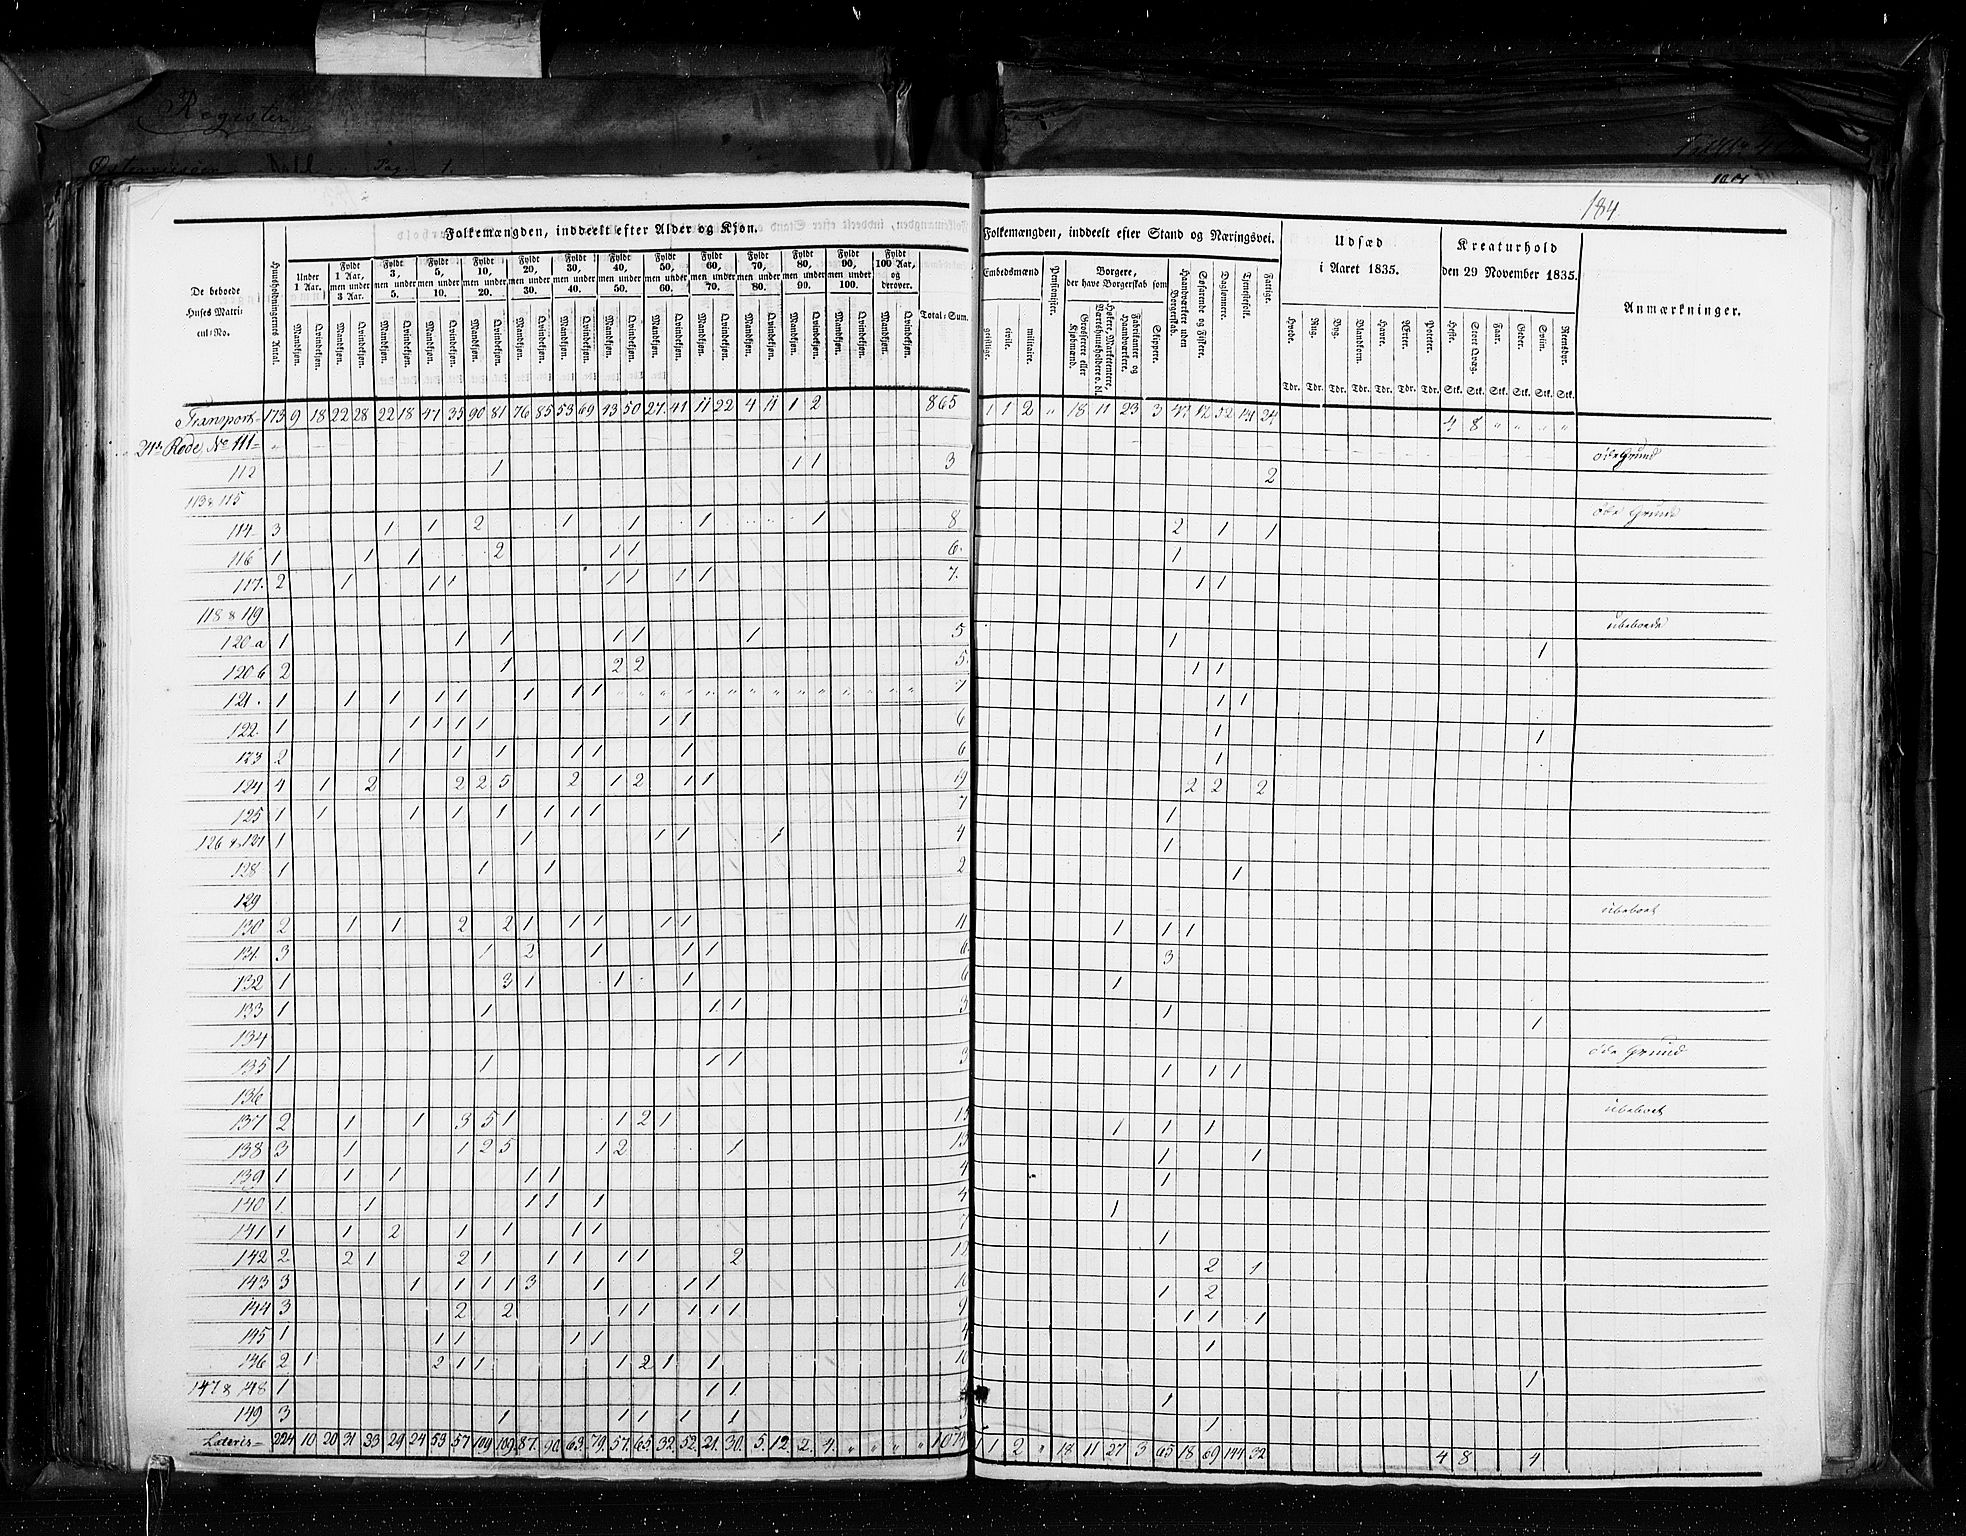 Register
Pag. 1.
184
Folkemængden, inddeelt efter Alder og Kjøn.
De beboede Huses Matricul-No.
Huusholdningernes Antal.
Under 1 Aar.
Fyldt 1 Aar, men under 3 Aar.
Fyldt 3, men under 5.
Fyldt 5, men under 10.
Fyldt 10, men under 20.
Fyldt 20, men under 30.
Fyldt 30, men under 40.
Fyldt 40, men under 50.
Fyldt 50, men under 60.
Fyldt 60, men under 70.
Fyldt 70, men under 80.
Fyldt 80, men under 90.
Fyldt 90, men under 100.
Fyldt 100 Aar, og derover.
Mandkjøn. Qvindekjøn.
Total-Sum.
Folkemængden, inddeelt efter Stand og Næringsvei.
Embedsmænd
geistlige. civile. militaire.
Pensionister.
Borgere, der have Borgerskab som
Grosserere eller Kjøbmænd.
Høkere, Marketentere, Værtshuusholdere o. dl.
Fabrikanter og Haandværkere.
Skippere.
Haandværkere uden Borgerskab.
Søfarende og Fiskere.
Daglønnere.
Tjenestefolk.
Fattige.
Udsæd i Aaret 1835.
Hvede. Rug. Byg. Blandkorn. Havre. Ærter. Poteter.
Tdr. Tdr. Tdr. Tdr. Tdr. Tdr. Tdr.
Kreaturhold den 29 November 1835.
Heste. Stort Qvæg. Faar. Geder. Sviin. Rensdyr.
Stk. Stk. Stk. Stk. Stk. Stk.
Anmærkninger.
Transport 173 9 18 22 28 22 18 47 35 90 81 76 85 53 69 43 50 27 41 11 22 4 11 1 2 865 1 1 2 " 18 11 23 3 47 12 52 141 24 4 8 " " " "
Rode, No 111 øde Grund
112 1 1 1 3 2
113 & 115 øde Grund
114 3 1 1 2 1 1 1 1 8 2 1 1
116 1 1 1 2 1 1 6. 1
117. 2 1 1 1 1 1 1 1 7. 1 1
118 & 119 ubeboede
120 a 1 1 1 1 1 1 5 1 1
120 b 2 1 2 2 5. 1 1
121. 1 1 1 1 1 1 1 1 7 1 1
122. 1 1 1 1 1 1 1 6 1 1
123 2 1 1 1 1 1 1 6 1
124 4 1 2 2 2 5 2 1 2 1 1 19 2 2 2
125 1 1 1 1 1 1 1 1 7 1
126 & 127 1 1 1 1 1 4 1
128 1 1 1 2 1
129 ubeboet
130 2 1 1 2 2 1 1 1 1 1 11 1 1 1
131. 3 1 2 1 1 1 6. 3
132 1 3 1 1 1 6 1
133 1 1 1 1 3 1 1
134 øde Grund
135 1 1 1 1 3 1 1 1
136 ubeboet
137 2 1 1 3 5 1 1 2 1 15 1 1 1
138 3 1 1 2 5 1 2 1 13 1 1
139 1 1 1 1 1 4 1
140 1. 1 1 1 1 4 1
141 1 1 2 1 1 1 1 7 1
142 2 2 1 2 1 1 1 1 1 2 12 2 1
143 3 1 1 1 1 3 1 1 1 10 1 2
144 3 2 2 1 1 1 1 1 9 1 1 1
145 1 1 1 1 1 4 1
136 2 1 2 1 1 1 2 1 1 10 1
147 & 148 1 1 1 1
149 3 1 1 1 1 1 5 1
Lateris 224 10 20 31 33 29 24 53 57 109 109 87. 90 63. 79. 57. 65. 32. 52. 21. 30. 5. 12. 2. 4. " " " " 1 2 " 18 11 27 3 65 18 69 144 32 4 8 4